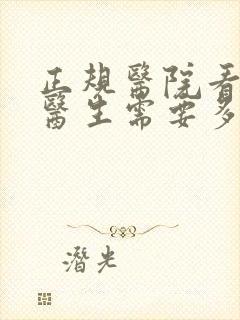 正規醫院看
醫生需要多
潛光